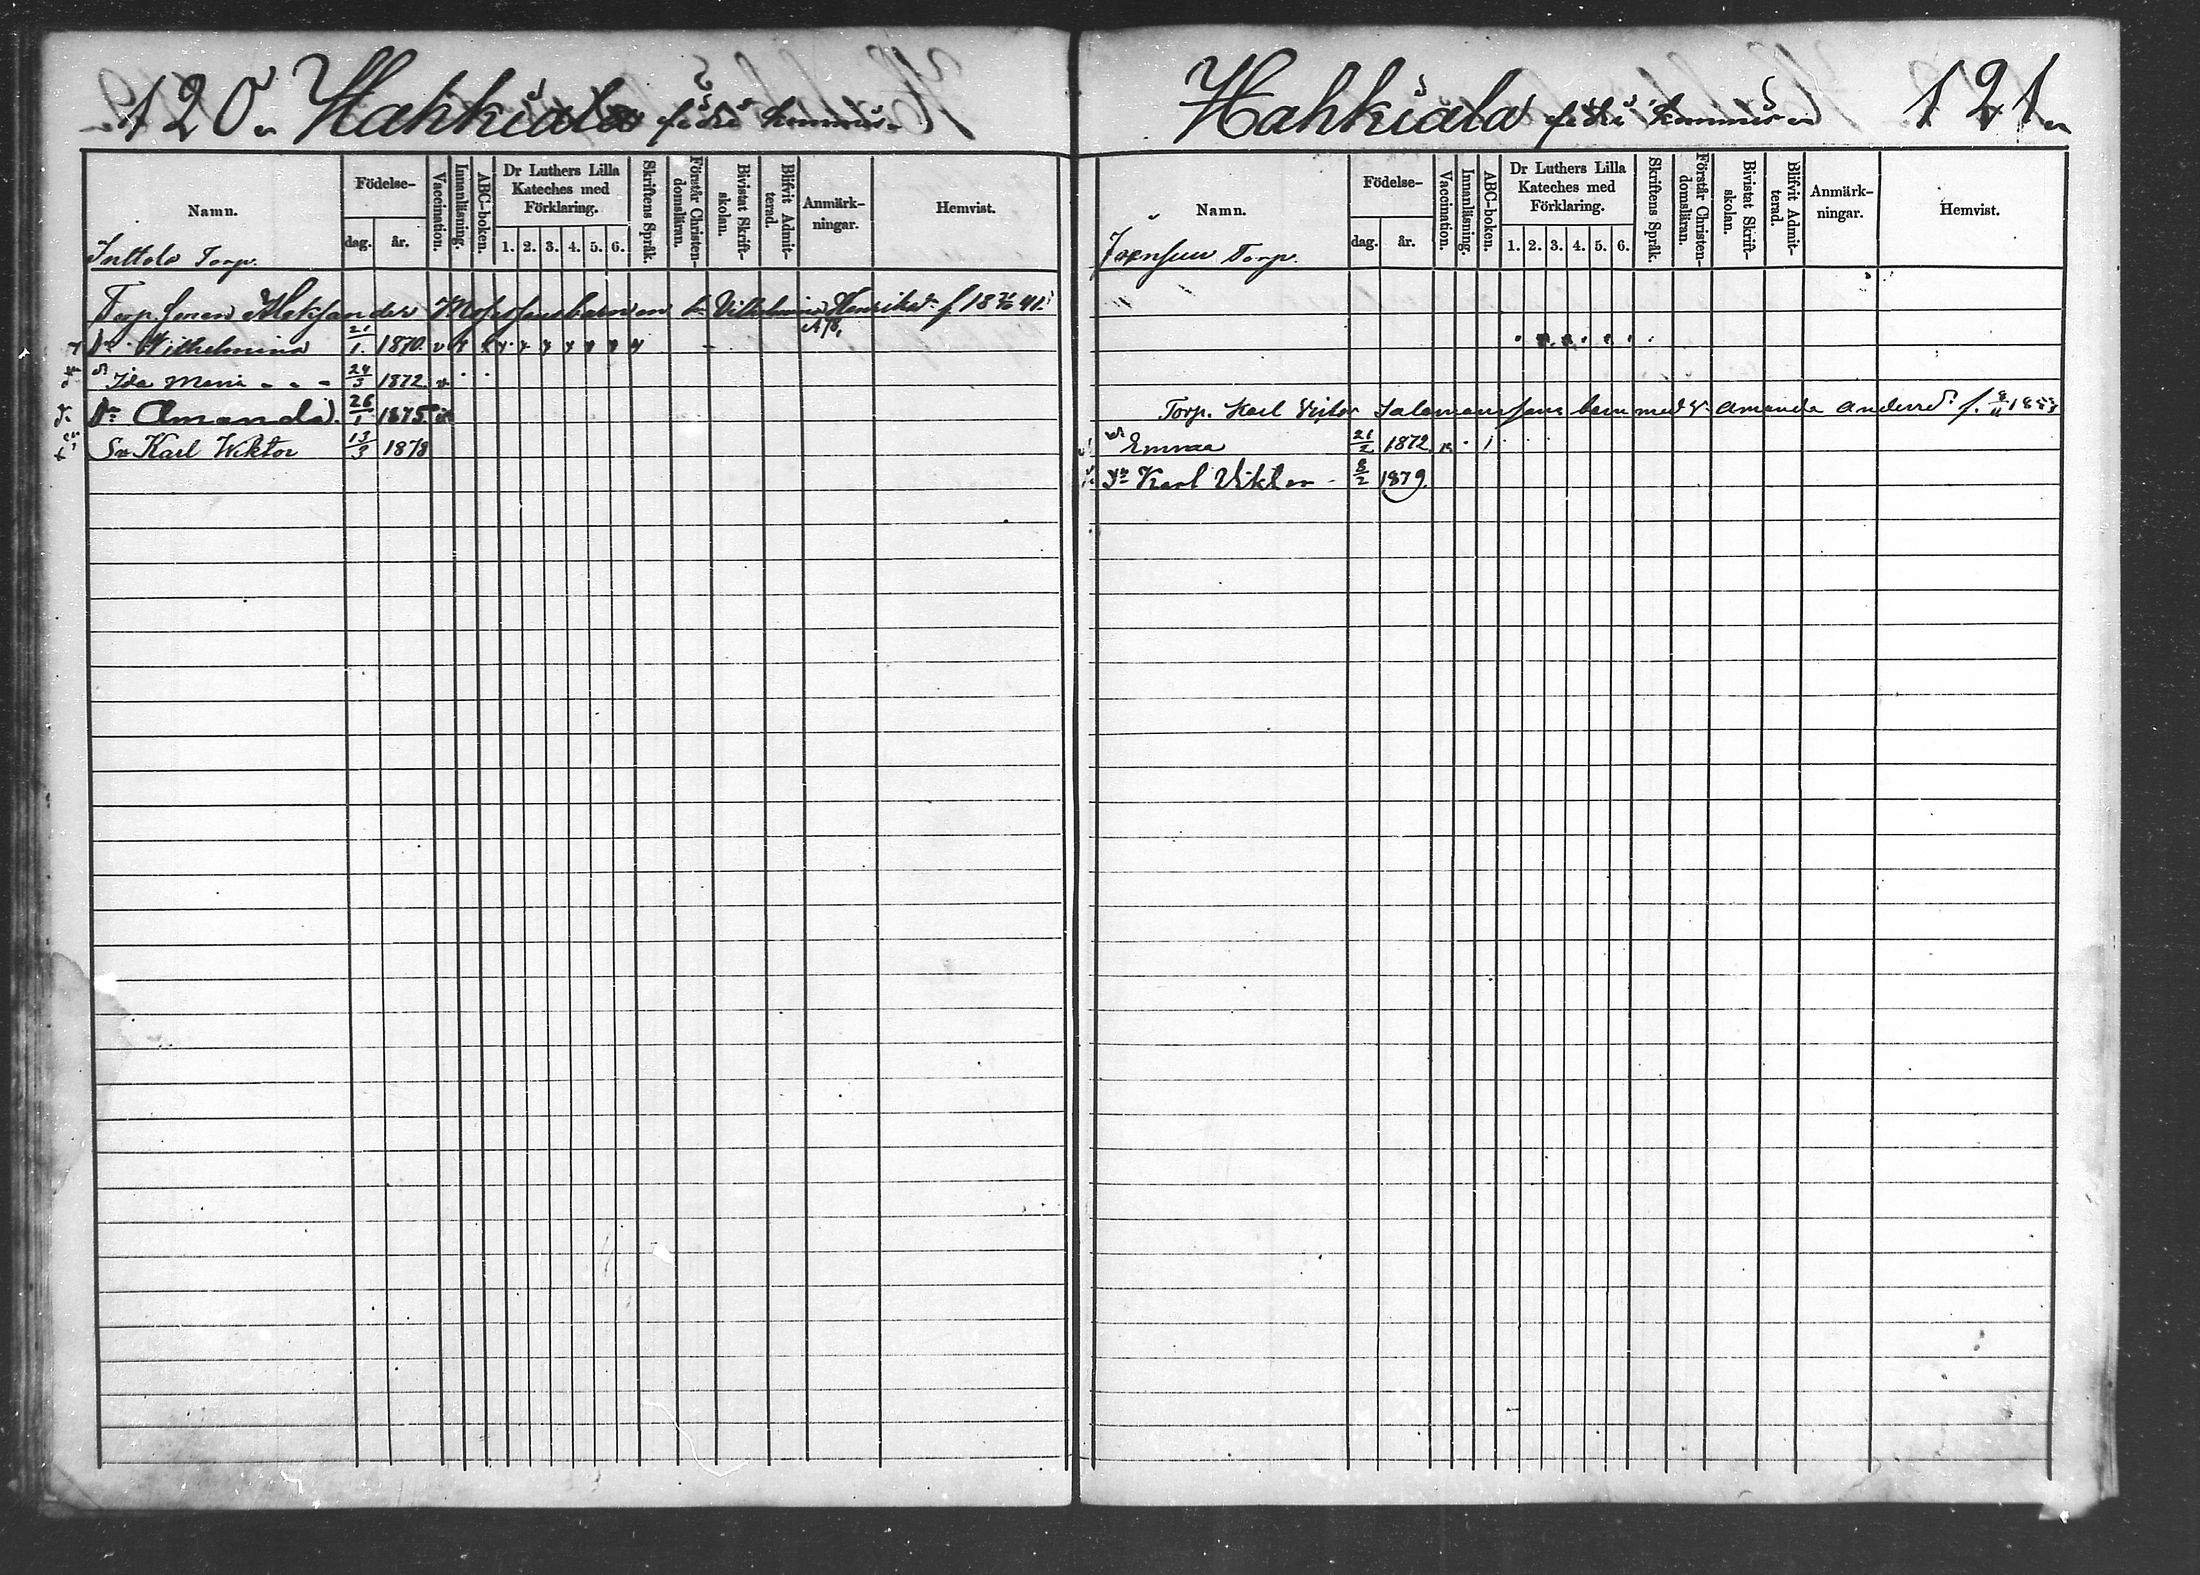 120 Hahkiala
Namn. Födelse- dag. år. Vaccination. Innanläsning. ABC-boken. Dr Luthers Lilla Kateches med Förklaring. 1. 2. 3. 4. 5. 6. Skriftens Språk. Förstår Christen-domsläran. Bivistat Skrift-skolan. Blifvit Admit-terad. Anmärk-ningar. Hemvist.
Torp.
Torp. Aleksander Vilhelmina Henriksd. f. 18 41.
Dr Wilhelmina 21/1. 1870. v
Dr Ida Maria - - - 24/3 1872. v
Dr Amanda. 26/1 1875. v
Sn Karl Wiktor 13/3 1878
Hahkiala 121
Namn. Födelse- dag. år. Vaccination. Innanläsning. ABC-boken. Dr Luthers Lilla Kateches med Förklaring. 1. 2. 3. 4. 5. 6. Skriftens Språk. Förstår Christen-domsläran. Bivistat Skrift-skolan. Blifvit Admit-terad. Anmärk-ningar. Hemvist.
Joensuu Torp.
Torp. Karl Viktor Salomonssons barn med h. Amanda Andersd. f.
Dr Emma 21/2 1872.
Sn Karl Viktor - 8/2 1879.